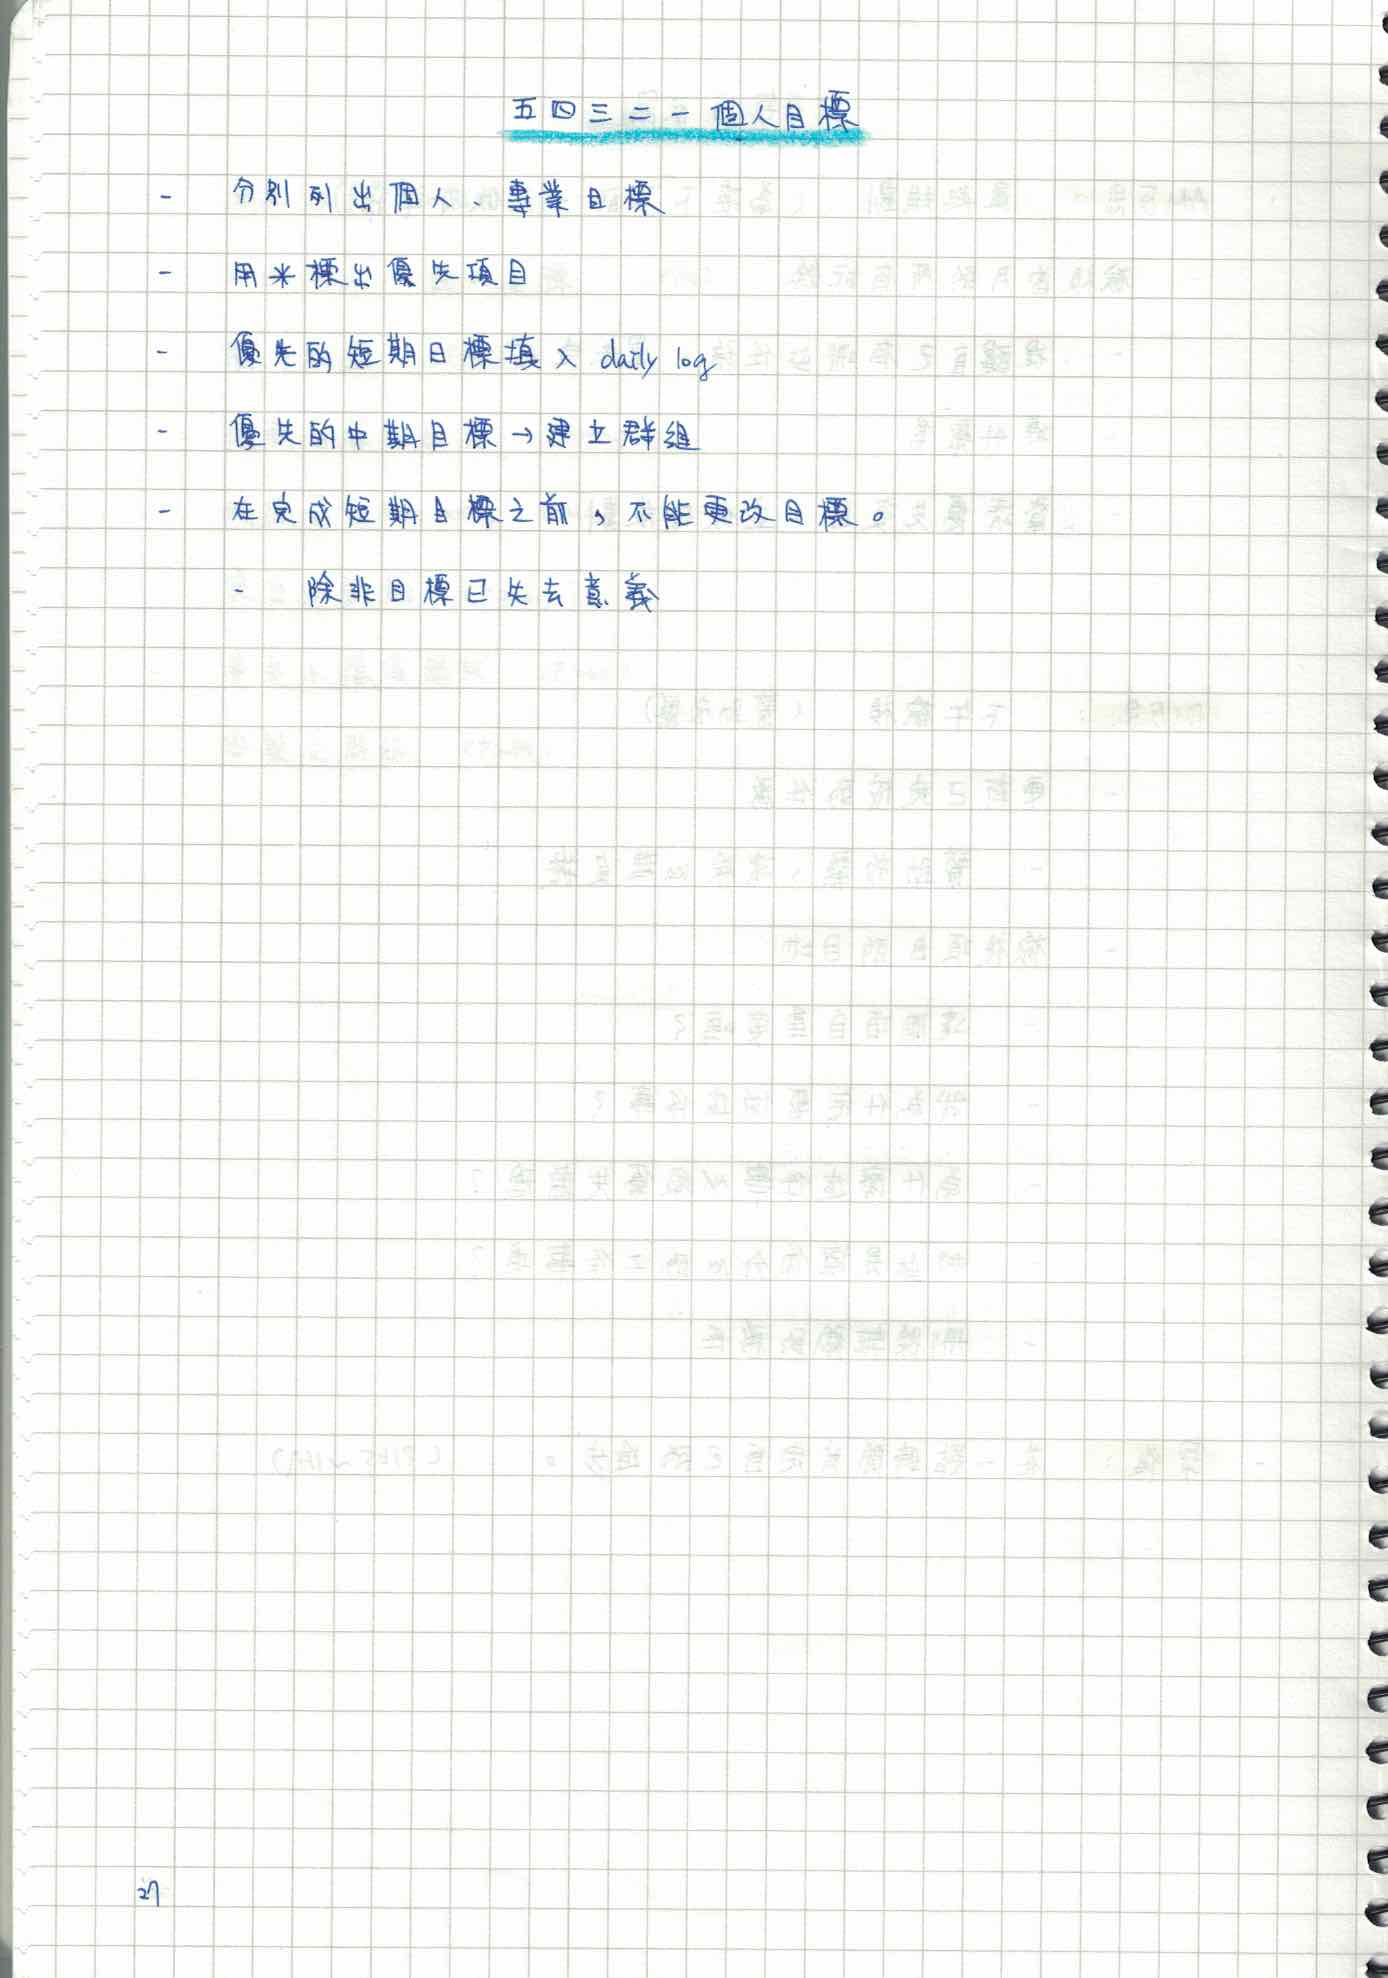 五四三二一個人目標
- 分別列出個人、專業目標
- 用米標出優先項目
- 優先的短期目標填入 daily log
- 優先的中期目標→建立群組
- 在完成短期目標之前，不能更改目標。
- 除非目標已失去意義
27